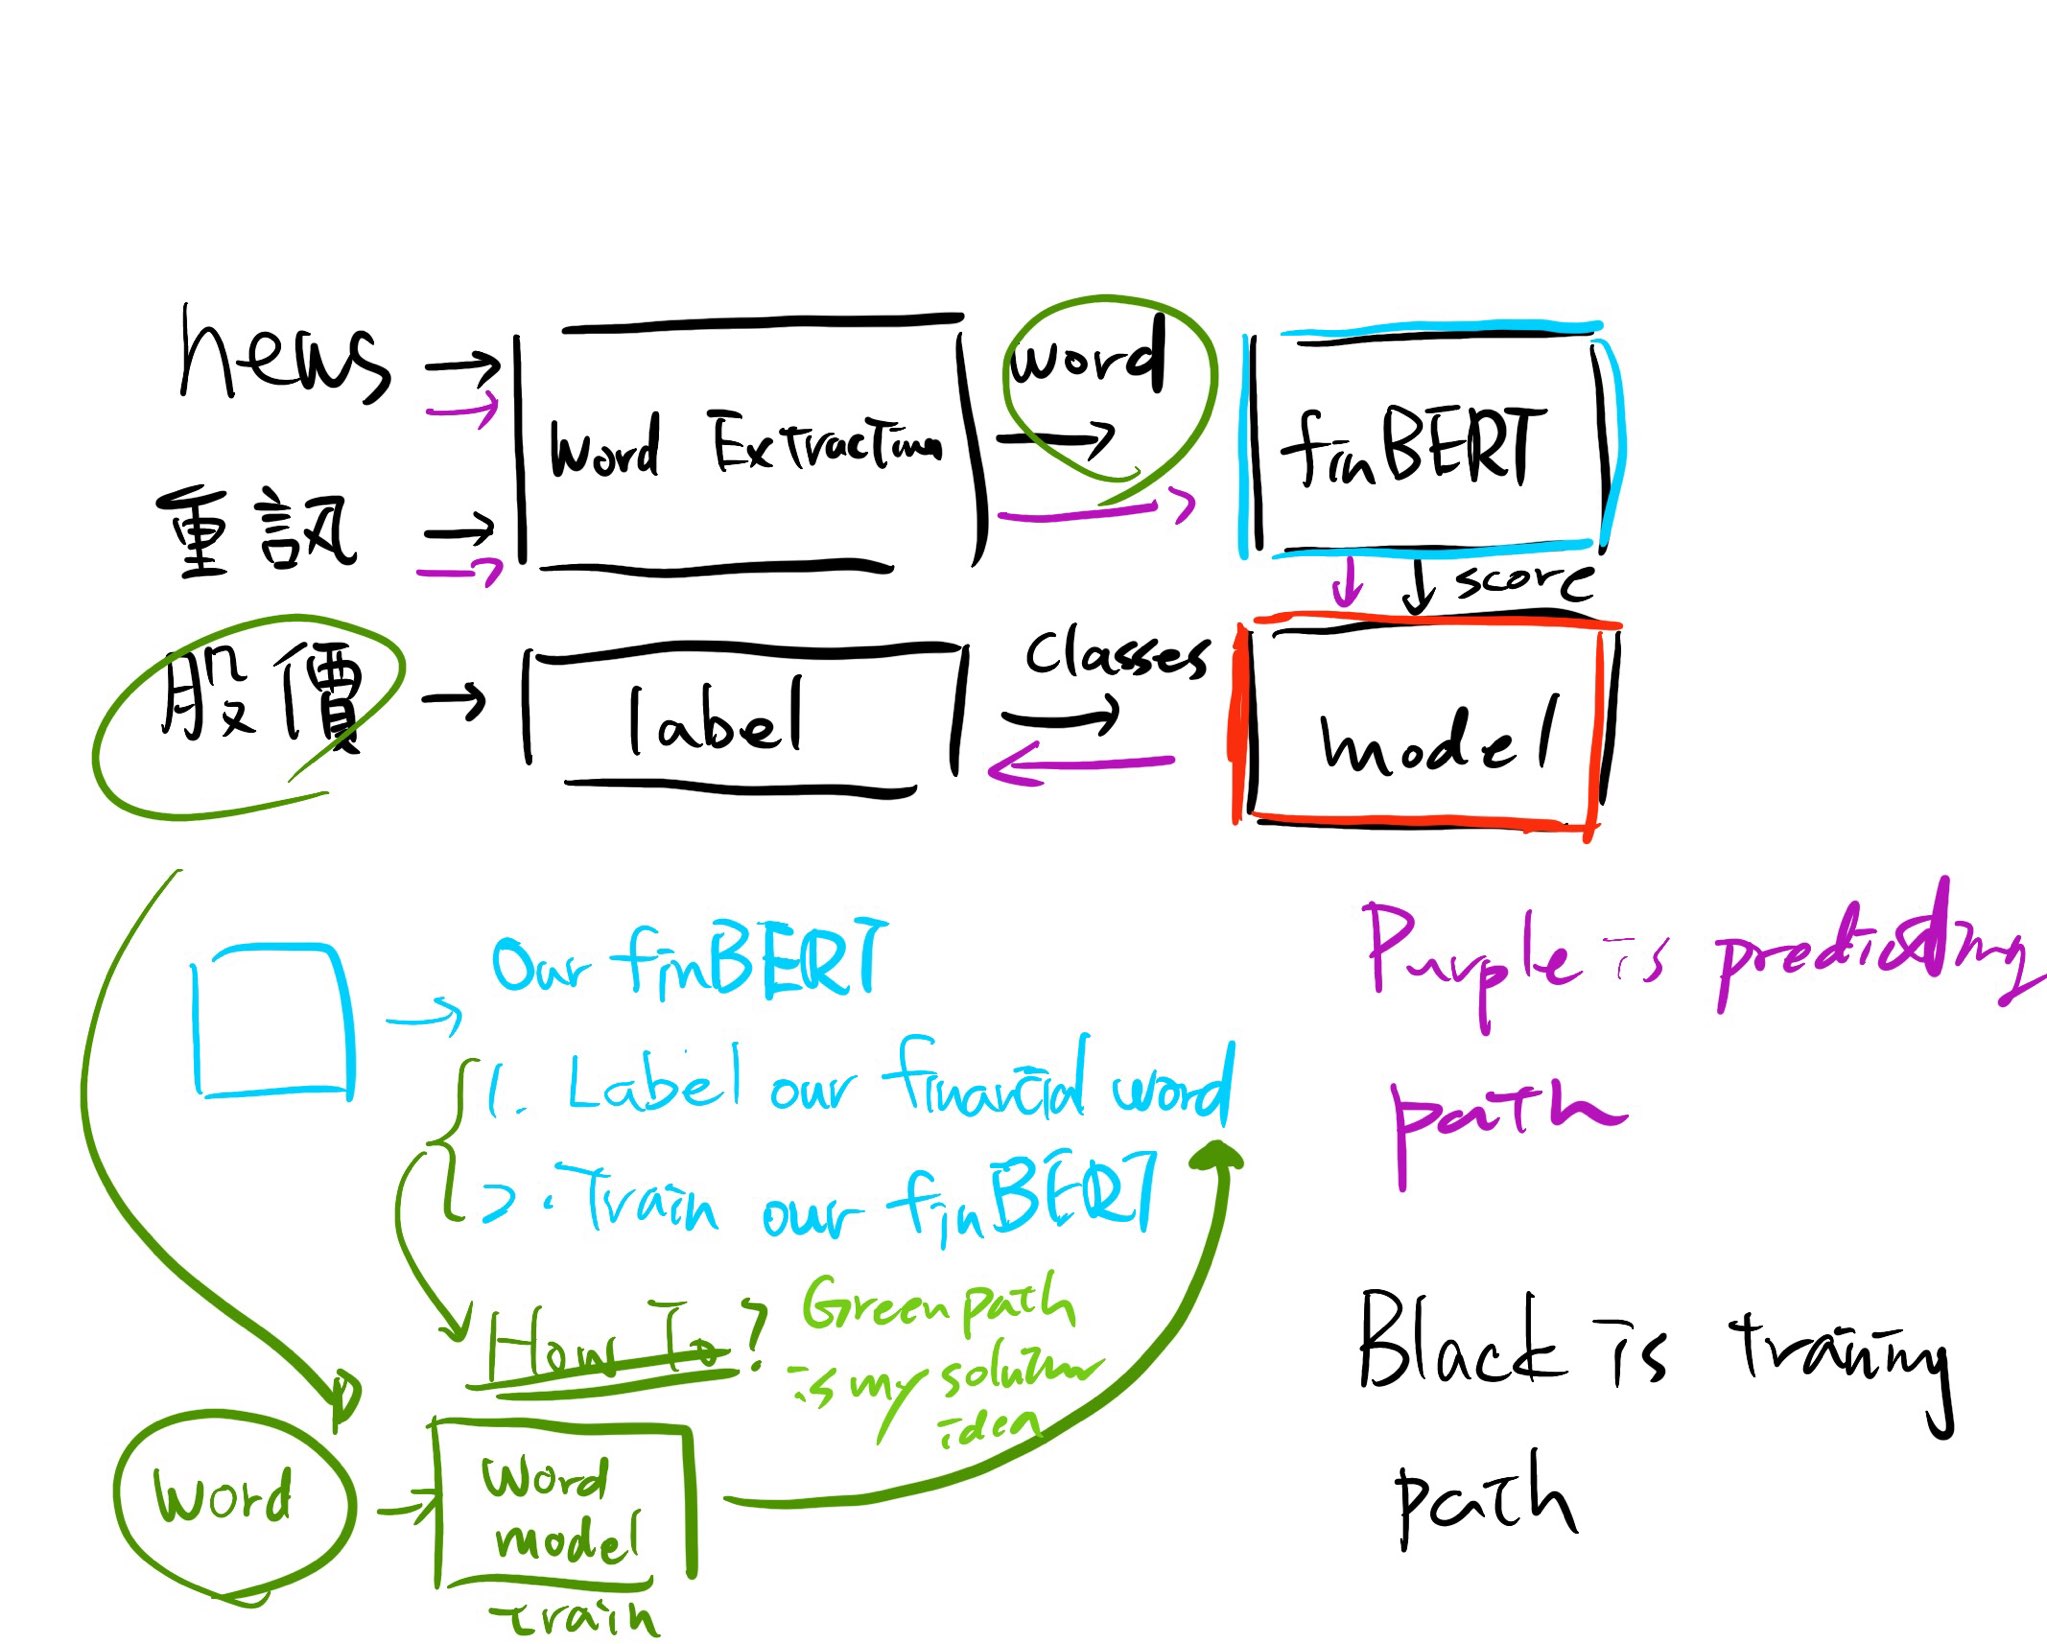 news
word
Word Extraction
finBERT
重訊
score
股價
label
Classes
model
Our finBERT
1. Label our financial word
2. Train our finBERT
How To?
Green path
is my solution
idea
word
word
model
train
Purple is predicting
path
Black is training
path